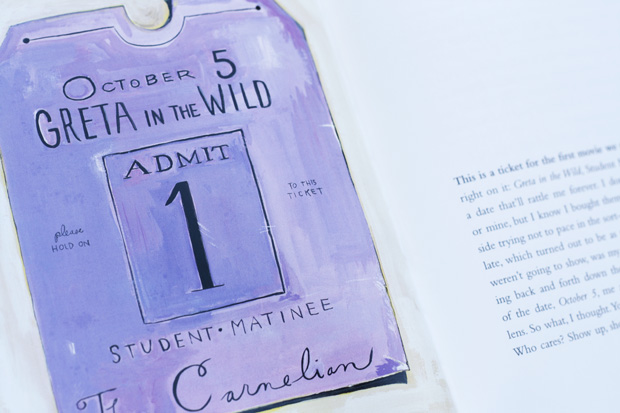 OCTOBER 5
GRETA IN THE WILD
ADMIT
1
please
HOLD ON
TO THIS
TICKET
STUDENT · MATINEE
Carnelian
This is a ticket for the first movie we
right on it: Greta in the Wild, Student
a date that'll rattle me forever. I
or mine, but I know I bought them
side trying not to pace in the
late, which turned out to be as
weren't going to show, was my
ing back and forth down the
of the date, October 5, me
lens. So what, I thought.
Who cares? Show up,